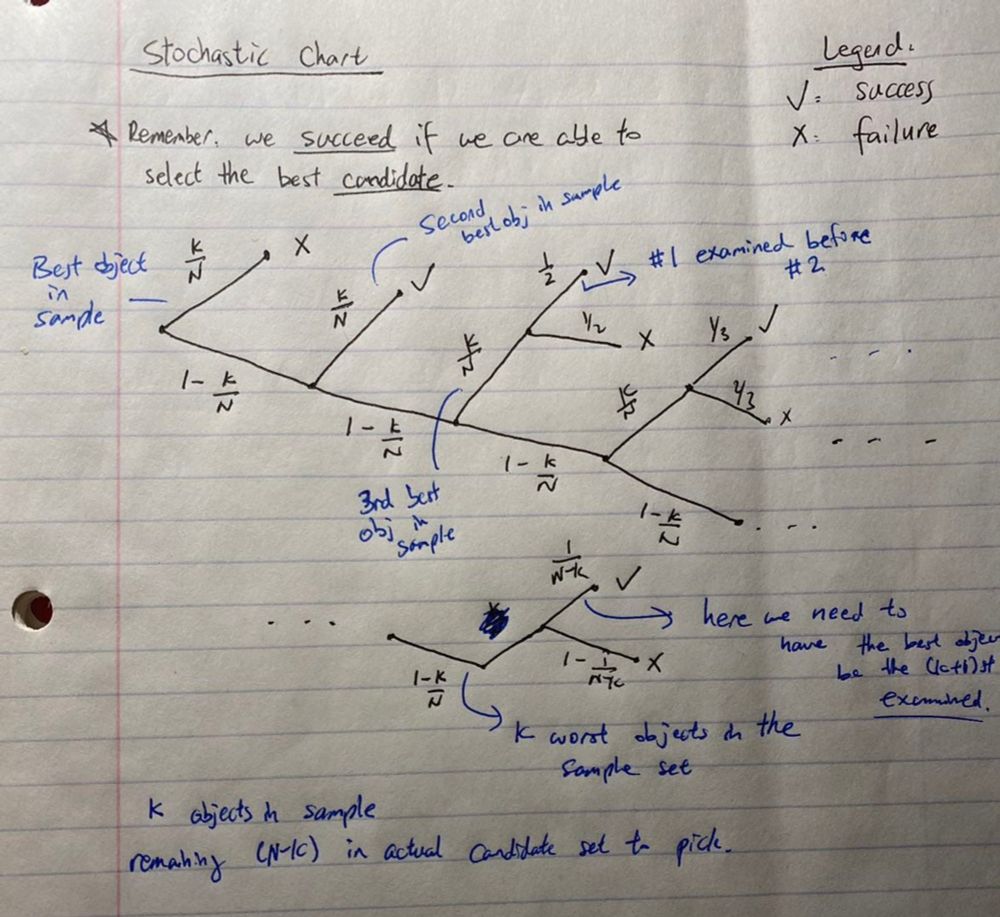 Stochastic Chart
Legend.
√: success
X: failure
* Remember. we succeed if we are able to
select the best candidate.
Second
best obj in sample
Best object
in
sample
k/N
X
k/N
√
1/2
√
#1 examined before
#2
k/N
1/2
X
1/3
√
k/N
2/3
X
. . .
- - -
1 - k/N
1 - k/N
1 - k/N
1 - k/N
. . .
3rd best
obj in
sample
1/N-k
√
here we need to
have the best objec
be the (k+1)st
examined.
. . .
1-k/N
1 - 1/N-k
X
K worst objects in the
sample set
K objects in sample
remaining (N-k) in actual candidate set to pick.